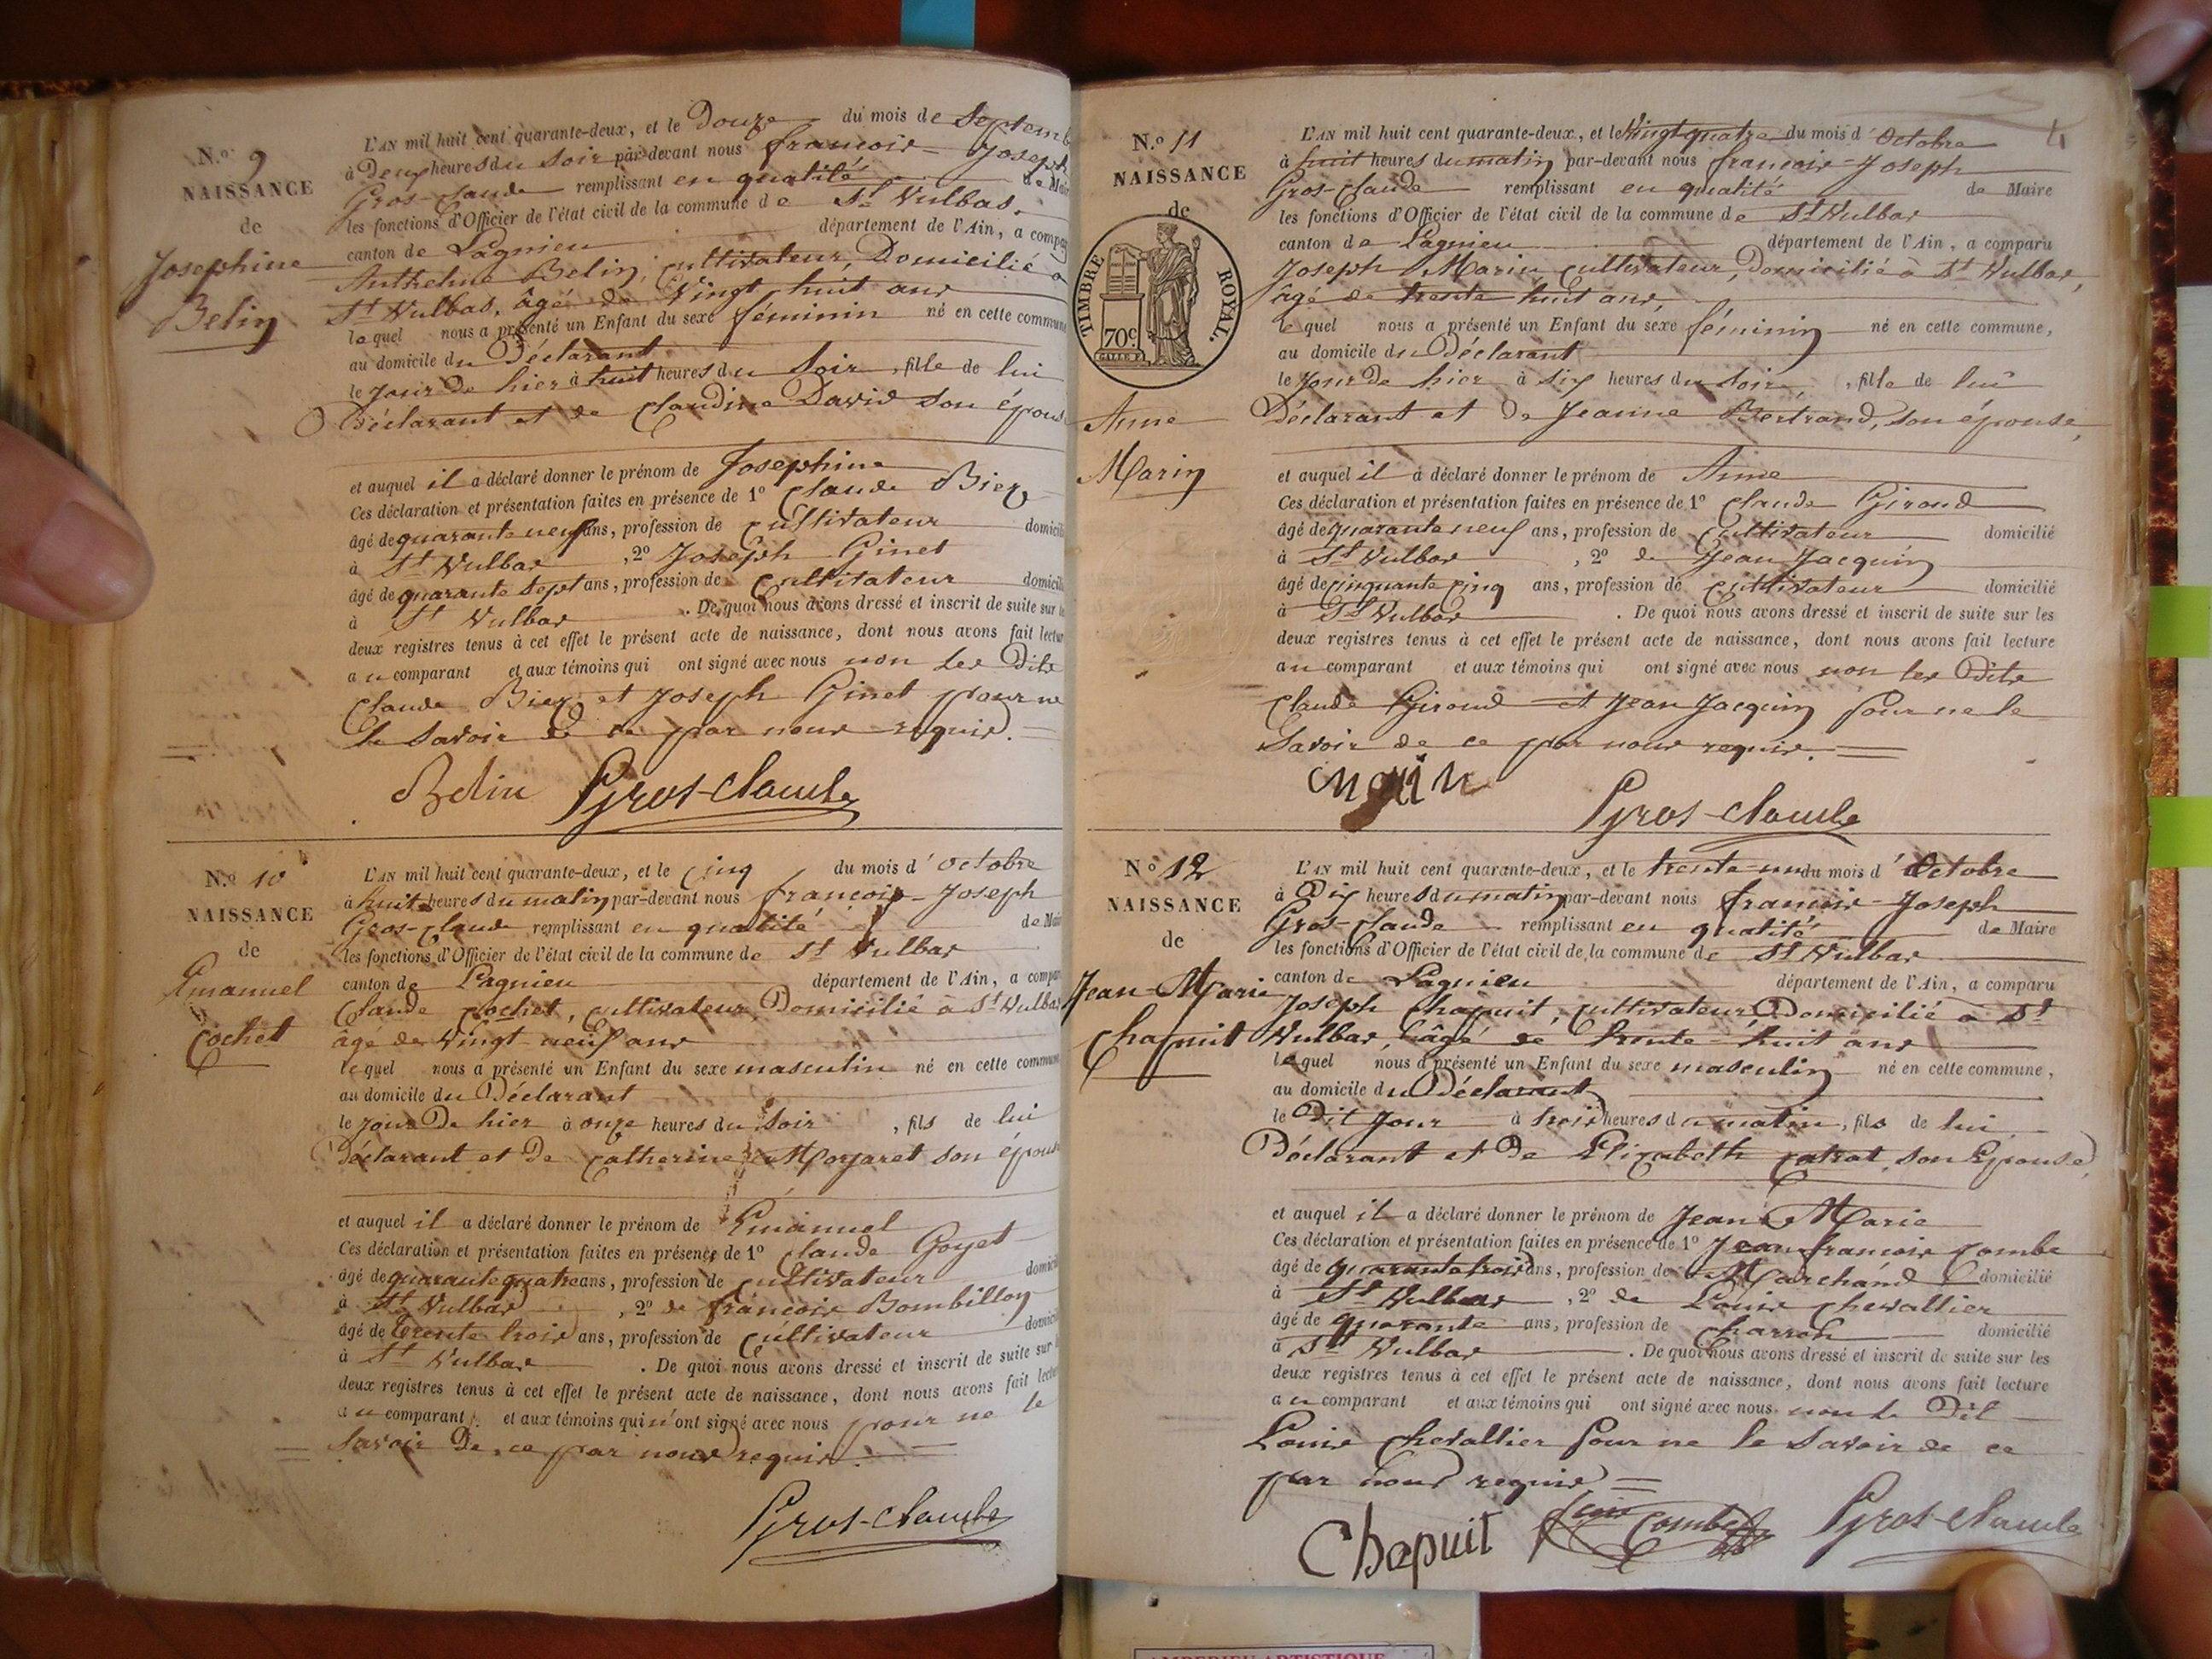 N.º 9
NAISSANCE
de
Josephine
Belin
L'AN mil huit cent quarante-deux, et le Douze du mois de Septemb
à Deux heures du Soir par-devant nous françois-Joseph
Gros-Claude remplissant en qualité de Mair
les fonctions d'Officier de l'état civil de la commune de St Vulbas.
canton de Lagnieu département de l'Ain, a compa
Anthelme Belin, cultivateur, Domicilié à
St Vulbas, âgé de Vingt huit ans
lequel nous a présenté un Enfant du sexe féminin né en cette commune
au domicile du Déclarant
le jour de hier à huit heures du Soir, fille de lui
Déclarant et de Claudine David son épous
et auquel il a déclaré donner le prénom de Josephine
Ces déclaration et présentation faites en présence de 1º Claude Biez
âgé de quarante neuf ans, profession de cultivateur domicili
à St Vulbas, 2º Joseph Ginet
âgé de quarante sept ans, profession de cultivateur domicili
à St Vulbas. De quoi nous avons dressé et inscrit de suite sur le
deux registres tenus à cet effet le présent acte de naissance, dont nous avons fait lectur
au comparant et aux témoins qui ont signé avec nous non les Dits
Claude Biez et Joseph Ginet pour ne
le Savoir de ce par nous requis.
Belin Gros-Claude
N.º 10
NAISSANCE
de
Emanuel
Cochet
L'AN mil huit cent quarante-deux, et le Cinq du mois d'octobre
à huit heures du matin par-devant nous françois-Joseph
Gros-Claude remplissant en qualité de Mair
les fonctions d'Officier de l'état civil de la commune de St Vulbas
canton de Lagnieu département de l'Ain, a compar
Claude Cochet, cultivateur, Domicilié à St Vulbas
âgé de Vingt-neuf ans
lequel nous a présenté un Enfant du sexe masculin né en cette commune
au domicile du Déclarant
le jour De hier à onze heures du Soir, fils de lui
déclarant et De Catherine son épouse
et auquel il a déclaré donner le prénom de Emanuel
Ces déclaration et présentation faites en présence de 1º Claude Goyet
âgé de quarante quatre ans, profession de cultivateur domicil
à St Vulbas, 2º de françois Bombillon
âgé de trente trois ans, profession de Cultivateur domicil
à St Vulbas. De quoi nous avons dressé et inscrit de suite sur
deux registres tenus à cet effet le présent acte de naissance, dont nous avons fait lectur
au comparant et aux témoins qui n'ont signé avec nous pour ne le
Savoir De ce par nous requis.
Gros-Claude
4
N.º 11
NAISSANCE
de
TIMBRE ROYAL.
70c
Anne
Marin
L'AN mil huit cent quarante-deux, et le Vingt quatre du mois d'Octobre
à huit heures du matin par-devant nous françois-Joseph
Gros-Claude remplissant en qualité de Maire
les fonctions d'Officier de l'état civil de la commune de St Vulbas
canton de Lagnieu département de l'Ain, a comparu
Joseph Marin cultivateur, Domicilié à St Vulbas,
âgé de trente huit ans,
lequel nous a présenté un Enfant du sexe féminin né en cette commune,
au domicile du Déclarant
le jour de hier à six heures du Soir, fille de lui
Déclarant et De Jeanne Bertrand, son épouse,
et auquel il a déclaré donner le prénom de Anne
Ces déclaration et présentation faites en présence de 1º Claude Giroud
âgé de quarante neuf ans, profession de Cultivateur domicilié
à St Vulbas, 2º de Jean Jacquin
âgé de cinquante cinq ans, profession de cultivateur domicilié
à St Vulbas. De quoi nous avons dressé et inscrit de suite sur les
deux registres tenus à cet effet le présent acte de naissance, dont nous avons fait lecture
au comparant et aux témoins qui ont signé avec nous non les Dits
Claude Giroud et Jean Jacquin pour ne le
Savoir de ce par nous requis.
Gros-Claude
Nº 12
NAISSANCE
de
Jean-Marie
Chapuit
L'AN mil huit cent quarante-deux, et le trente-un du mois d'Octobre
à Dix heures du matin par-devant nous françois-Joseph
Gros-Claude remplissant en qualité de Maire
les fonctions d'Officier de l'état civil de la commune de St Vulbas
canton de Lagnieu département de l'Ain, a comparu
Joseph Chapuit, cultivateur Domicilié à St
Vulbas, âgé de trente-huit ans
lequel nous a présenté un Enfant du sexe masculin né en cette commune,
au domicile du Déclarant
le Dit jour à trois heures du matin, fils de lui
Déclarant et De Elizabeth Catrat, son Epouse,
et auquel il a déclaré donner le prénom de Jean-Marie
Ces déclaration et présentation faites en présence de 1º Jean françois Combe
âgé de quarante trois ans, profession de Marchand domicilié
à St Vulbas, 2º de Louis Chevallier
âgé de quarante ans, profession de Charron domicilié
à St Vulbas. De quoi nous avons dressé et inscrit de suite sur les
deux registres tenus à cet effet le présent acte de naissance, dont nous avons fait lecture
au comparant et aux témoins qui ont signé avec nous non le Dit
Louis Chevallier pour ne le Savoir de ce
par nous requis
Chapuit Combe Gros-Claude
AMPERIEU ARTISTIQUE